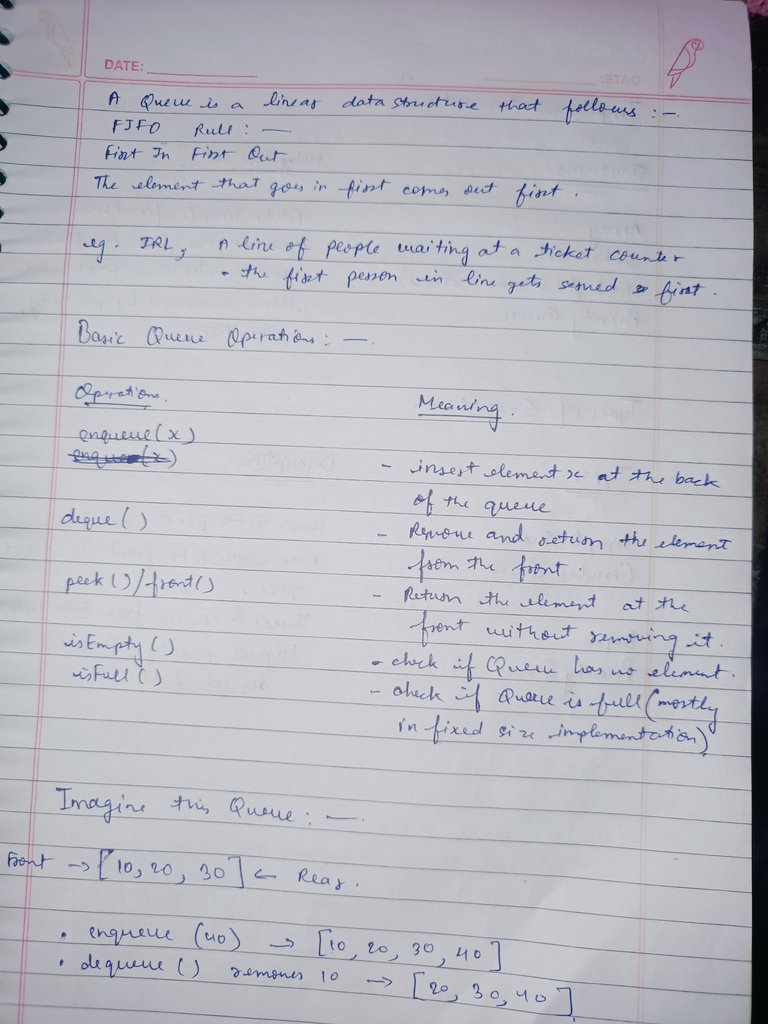 DATE:
A Queue is a linear data structure that follows :-
FIFO Rule : —
First In First Out
The element that goes in first comes out first .
eg . IRL, A line of people waiting at a ticket counter
• the first person in line gets served first .
Basic Queue Operations : — .
Operations. Meaning .
enqueue(x)
enque(x)
- insert element x at the back
of the queue
deque ( ) - Remove and return the element
from the front .
peek ( ) / front ( ) - Return the element at the
front without removing it .
isEmpty ( ) - check if Queue has no element .
isFull ( ) - check if Queue is full (mostly
in fixed size implementation)
Imagine this Queue : — .
Front → [10, 20, 30] ← Rear .
• enqueue (40) → [10, 20, 30, 40]
• dequeue ( ) removes 10 → [20, 30, 40]